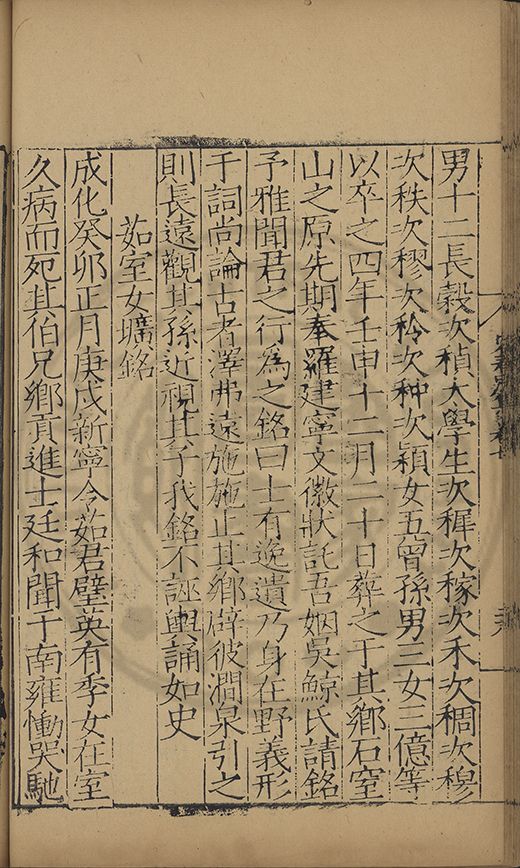 男十二長榖次楨太學生次穉次稼次禾次稠次穆
次秩次穋次秢次种次穎女五曾孫男三女三億等
以卒之四年壬申十二月二十日葬之于其鄉石室
山之原先期奉羅建寧文徽狀託吾姻吳鯨氏請銘
予雅聞君之行為之銘曰士有逸遺乃身在野義形
于詞尚論古者澤弗遠施施止其鄉辟彼澗泉引之
則長遠觀其孫近視其子我銘不誣輿誦如史
茹室女壙銘
成化癸卯正月庚戌新寧令茹君璧英有季女在室
久病而死其伯兄鄉貢進士廷和聞于南雍慟哭馳